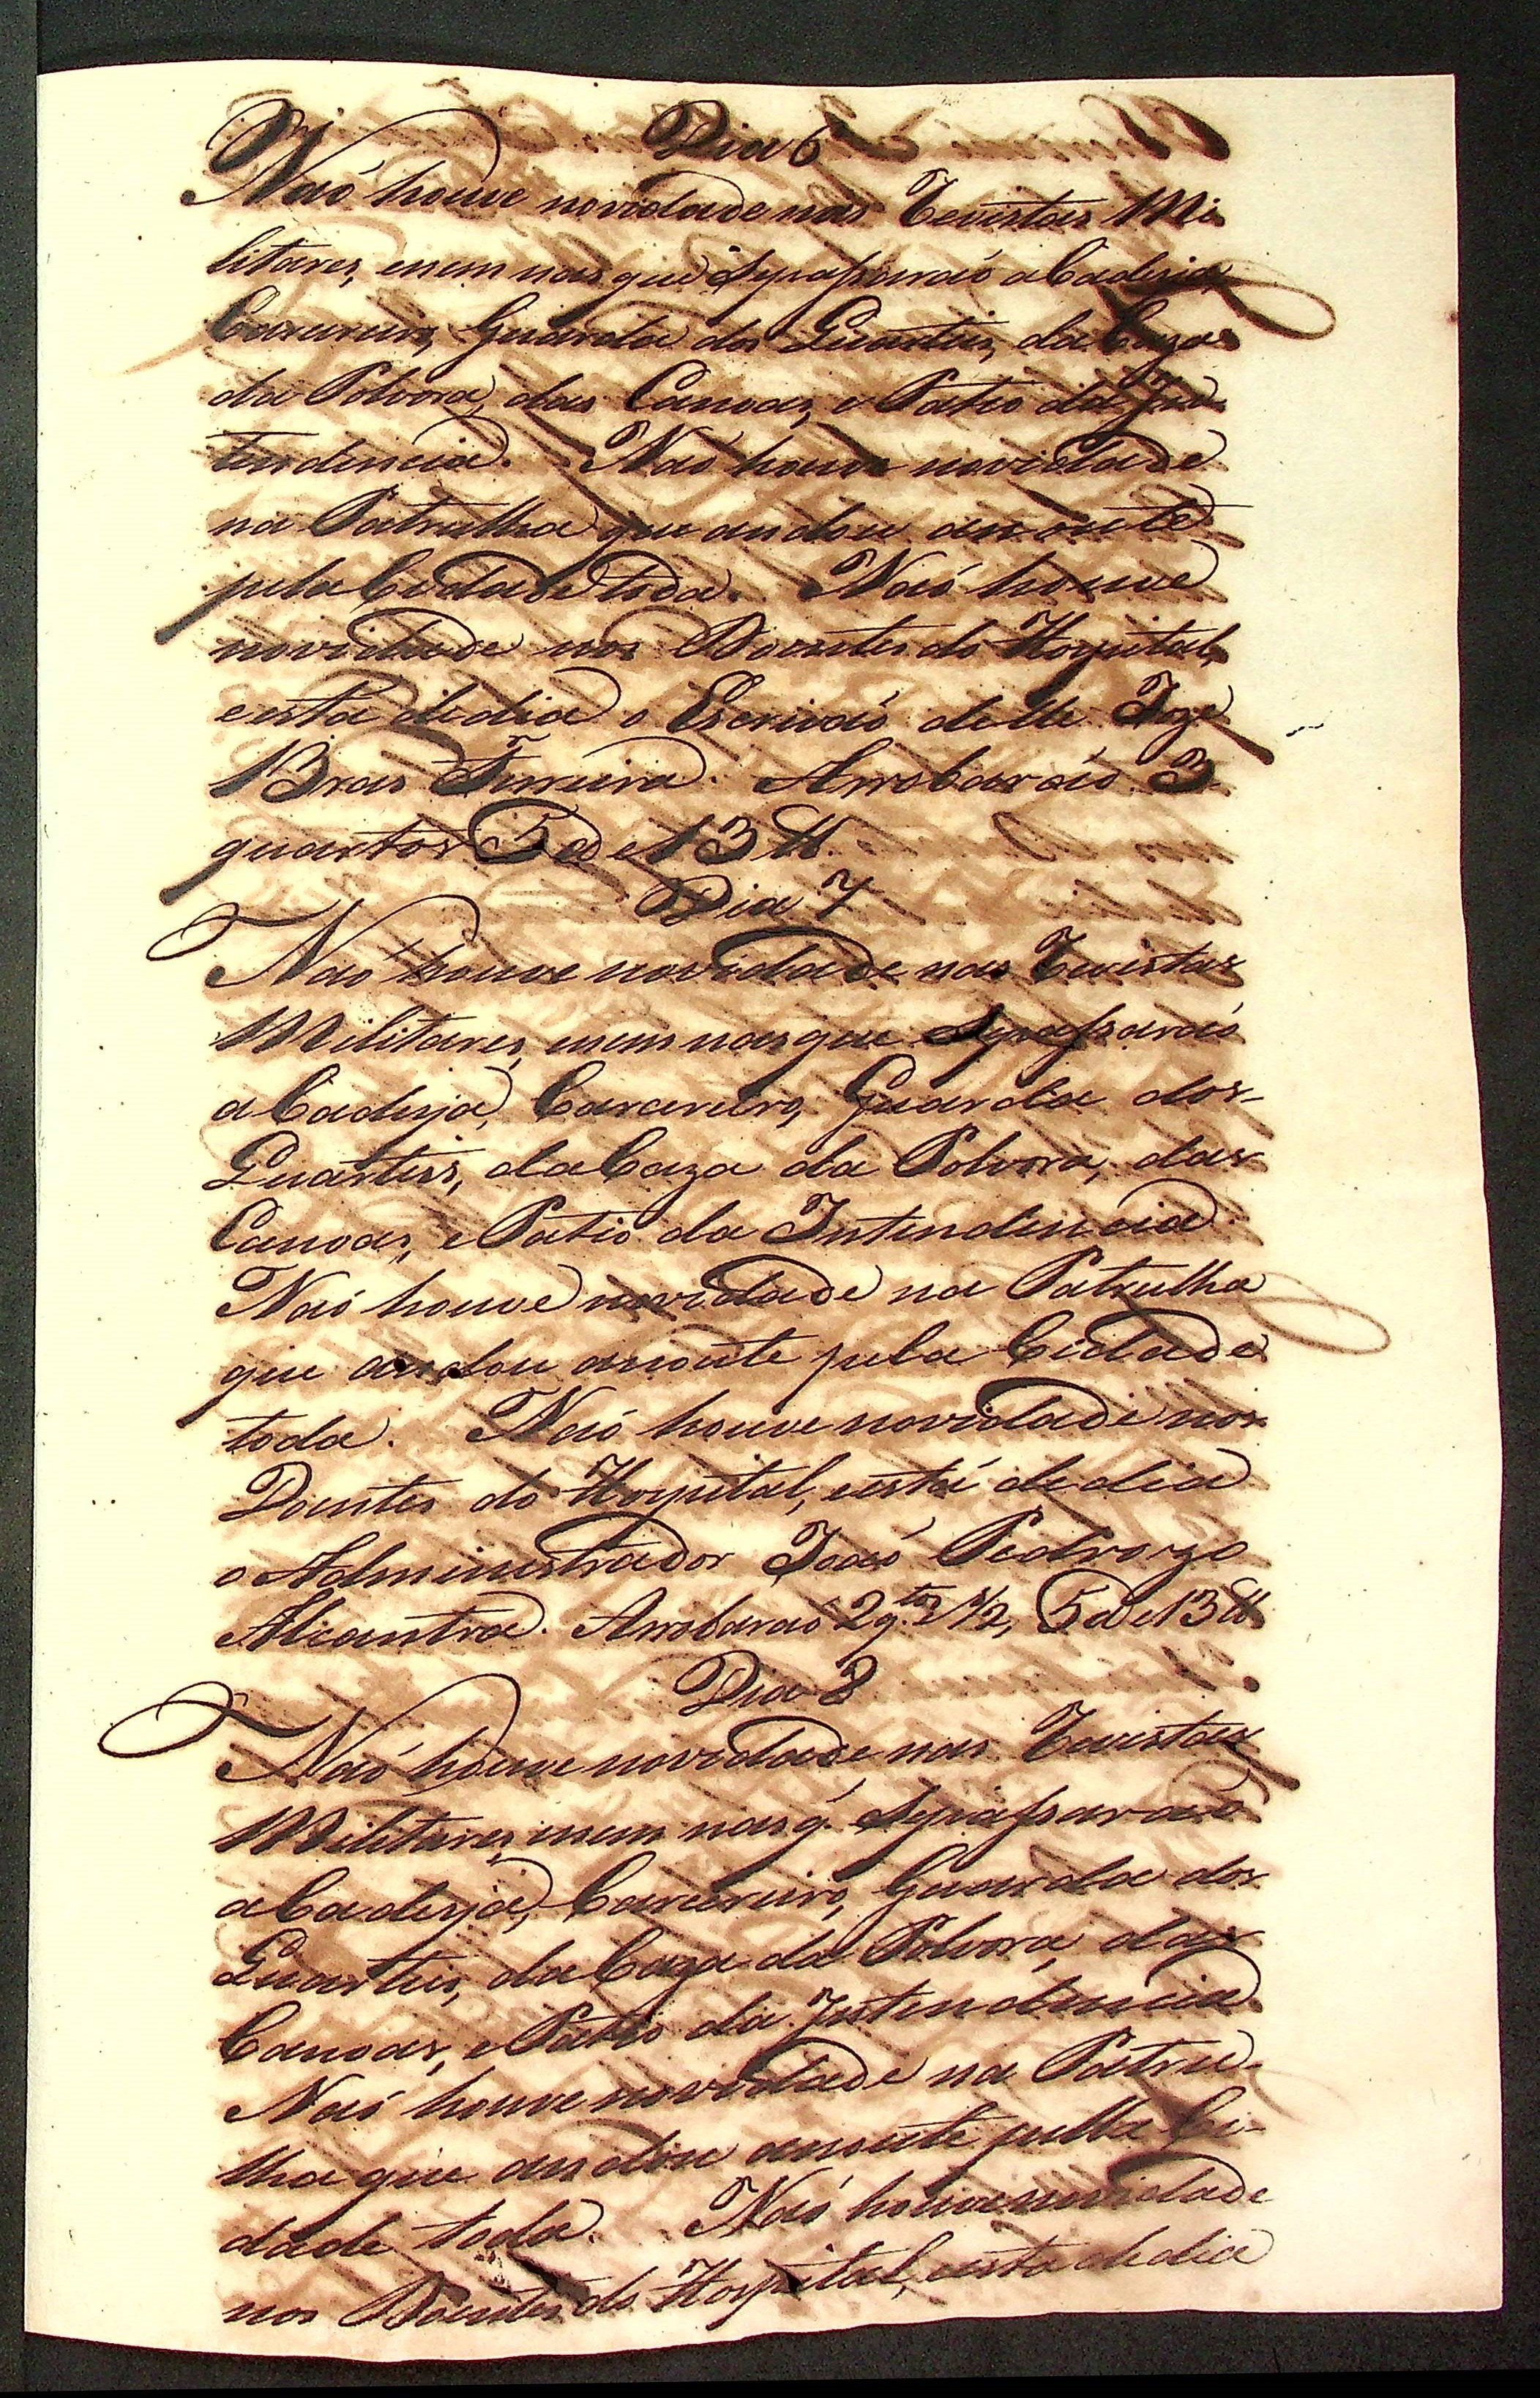 Dia 6
Naó houve novidade nas Revistas Mi-
litares, enem nas que Sepassaraó a Cadeja
Carcereiro, Guarda dos Quarteis, da Caza
da Polvora, das Canoas, e Patio da In-
tendencia. Naó houve novidade
na Patrulha que andou anoute
pela Cidade toda. Naó houve
novidade nos Doentes do Hospital,
eesta dedia o Escrivaó delle Joze
Bras Ferreira. Arrobaraó 3
quartos 5@ e 13 ℔.
Dia 7
Naó houve novidade nas Revistas
Militares, enem nas que Sepassaraó
a Cadeja, Carcereiro, Guarda dos
Quarteis, da Caza da Polvora, das
Canoas, e Patio da Intendencia.
Naó houve novidade na Patrulha
que andou anoute pela Cidade
toda. Naó houve novidade nos
Doentes do Hospital, eestá dedia
o Administrador Joaó Pedrozo
Alcantra. Arrobaraó 2 q.tos 1/2, 5@ e 13 ℔
Dia 8
Naó houve novidade nas Revistas
Militares, enem nas q. Sepassaraó
a Cadeja, Carcereiro, Guarda dos
Quarteis, da Caza da Polvora, das
Canoas, e Patio da Intendencia.
Naó houve novidade na Patru-
lha que andou anoute pella Ci-
dade toda. Naó houve novidade
nos Doentes do Hospital, eesta dedia